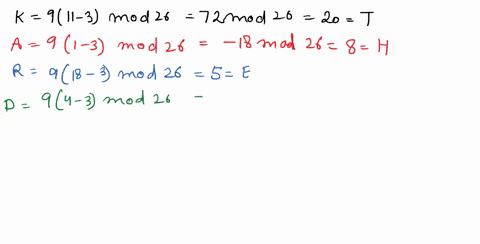 K = 9(11-3) mod 26 = 72 mod 26 = 20 = T
A = 9(1-3) mod 26 = -18 mod 26 = 8 = H
R = 9(18-3) mod 26 = 5 = E
D = 9(4-3) mod 26 =